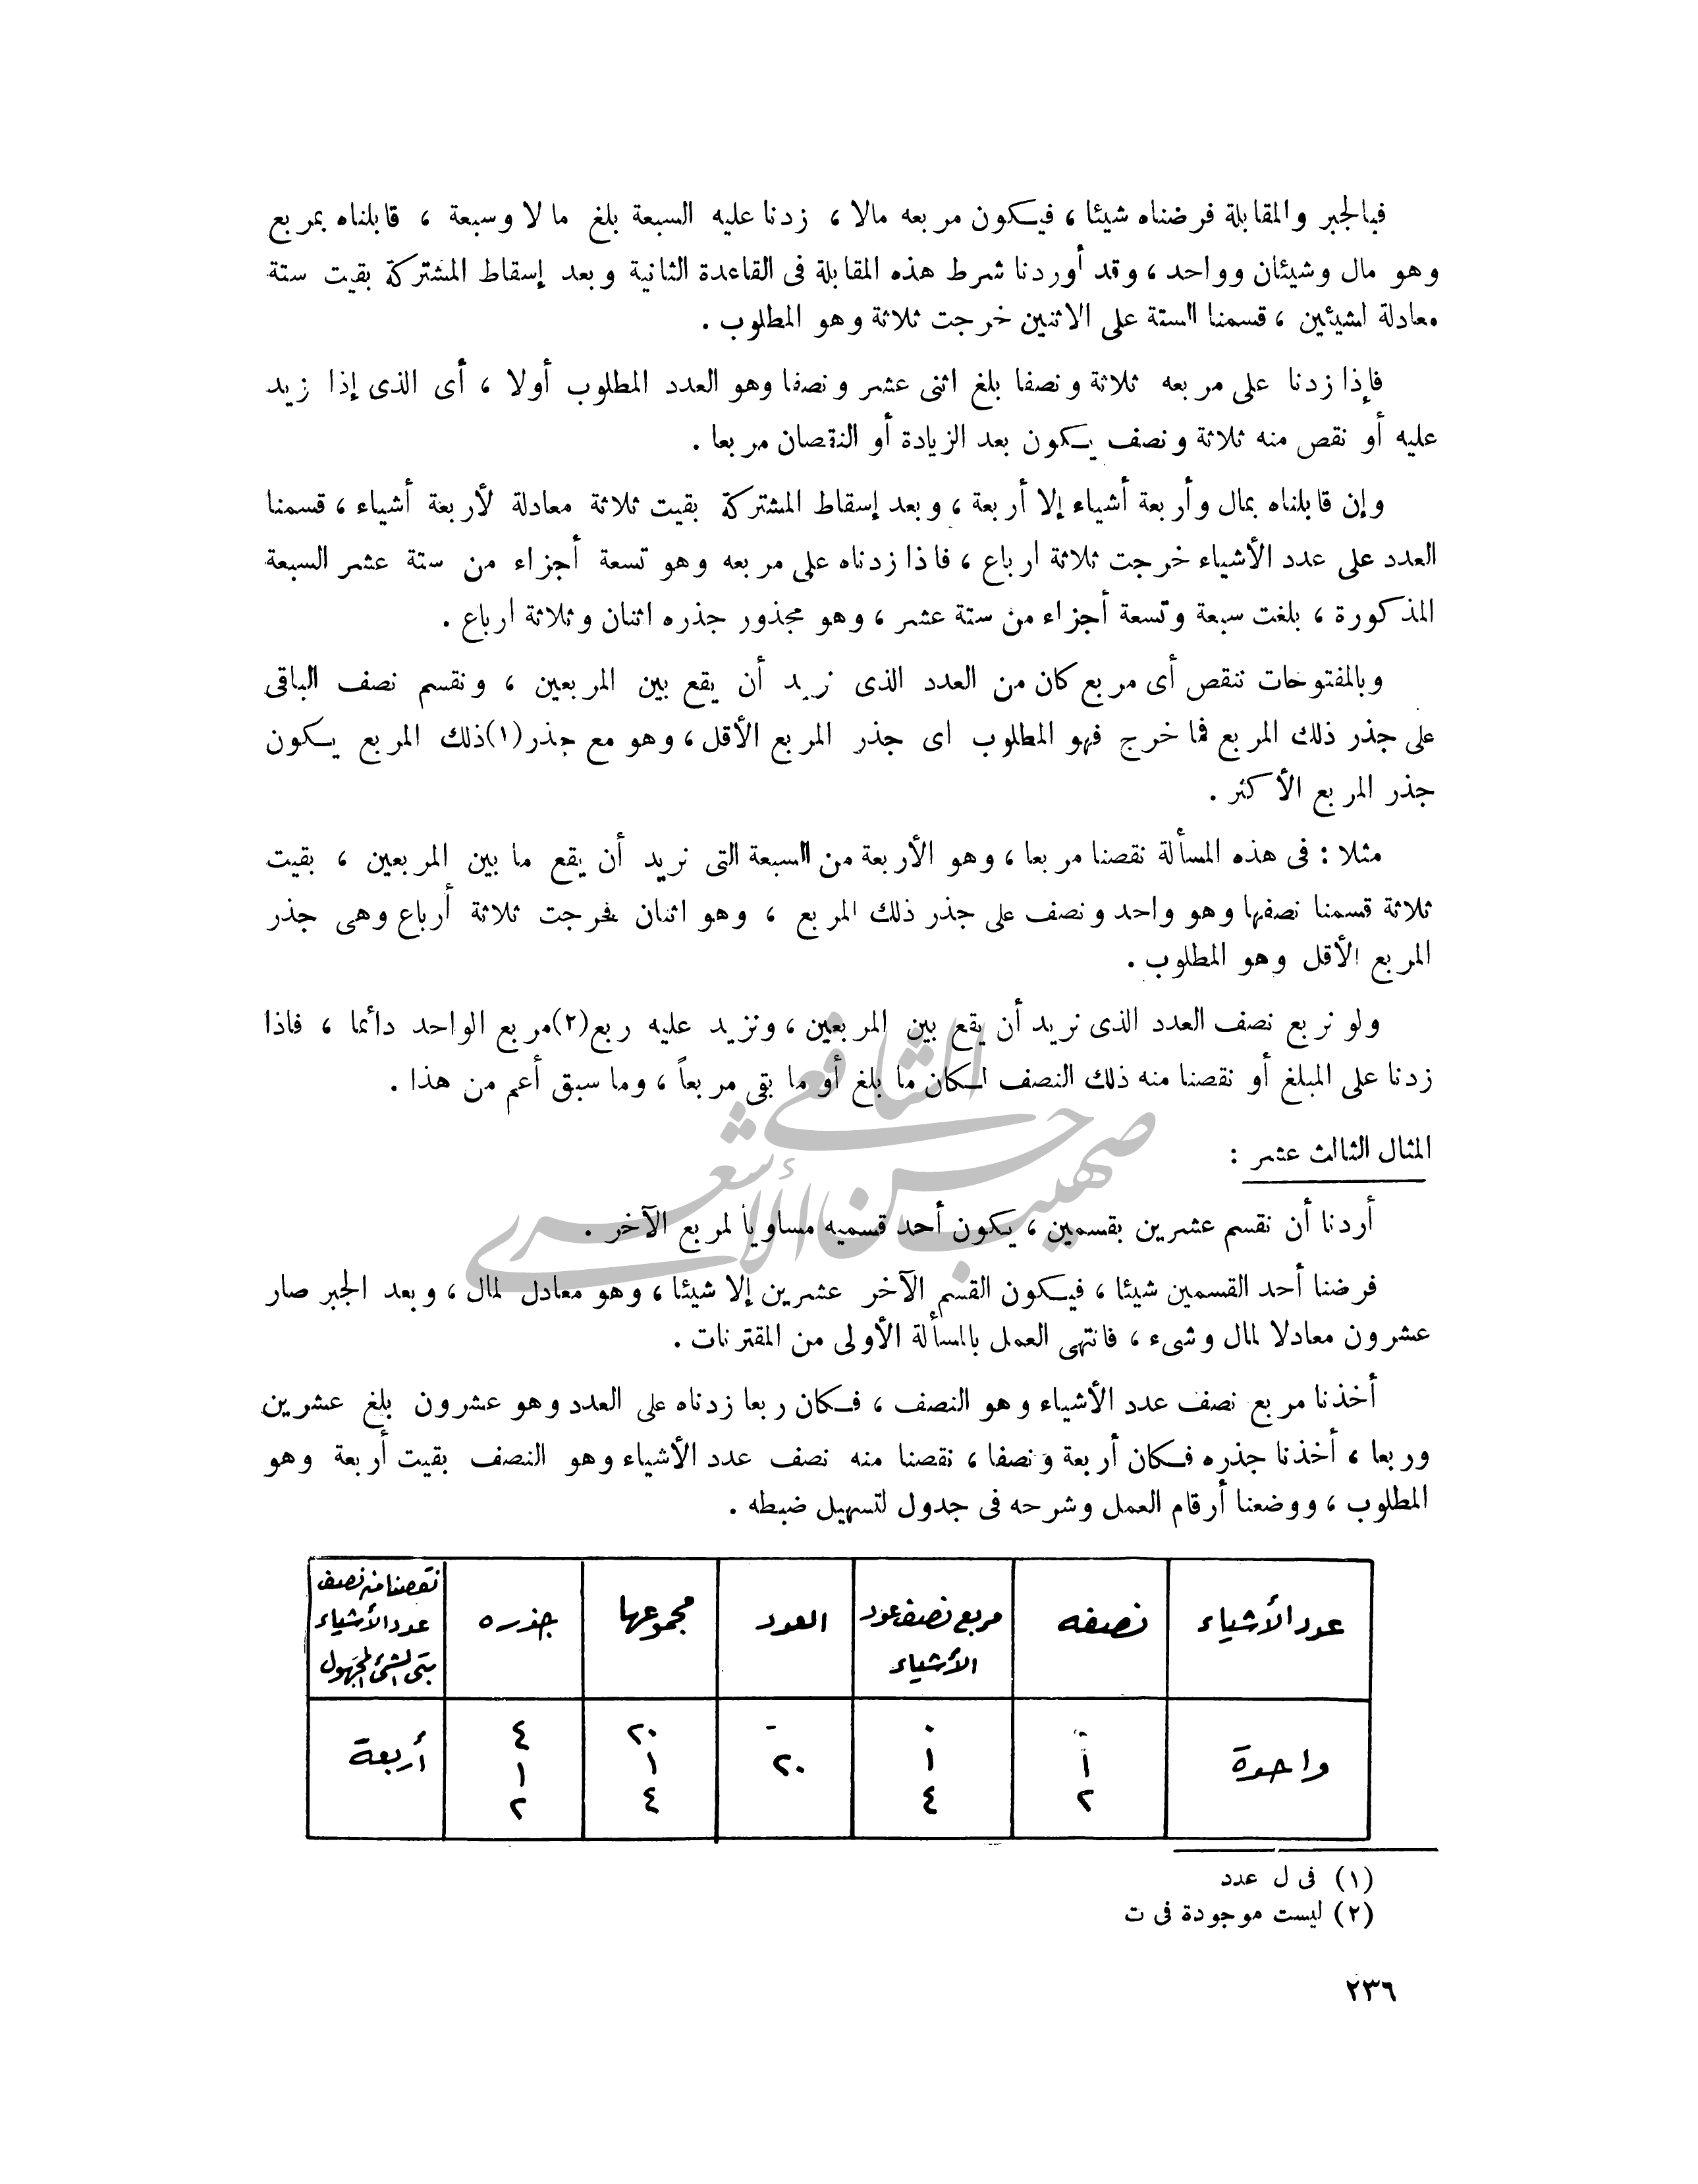 فبالجبر والمقابلة فرضناه شيئا ، فيكون مربعه مالا ، زدنا عليه السبعة بلغ مالا وسبعة ، قابلناه بمربع
وهو مال وشيئان وواحد ، وقد أوردنا شرط هذه المقابلة فى القاعدة الثانية وبعد إسقاط المشتركة بقيت ستة
معادلة لشيئين ، قسمنا الستة على الاثنين خرجت ثلاثة وهو المطلوب .
فإذا زدنا على مربعه ثلاثة ونصفا بلغ اثنى عشر ونصفا وهو العدد المطلوب أولا ، أى الذى إذا زيد
عليه أو نقص منه ثلاثة ونصف يكون بعد الزيادة أو النقصان مربعا .
وإن قابلناه بمال وأربعة أشياء إلا أربعة ، وبعد إسقاط المشتركة بقيت ثلاثة معادلة لأربعة أشياء ، قسمنا
العدد على عدد الأشياء خرجت ثلاثة ارباع ، فاذا زدناه على مربعه وهو تسعة أجزاء من ستة عشر السبعة
المذكورة ، بلغت سبعة وتسعة أجزاء من ستة عشر ، وهو مجذور جذره اثنان وثلاثة ارباع .
وبالمفتوحات ننقص أى مربع كان من العدد الذى نريد أن يقع بين المربعين ، ونقسم نصف الباقى
على جذر ذلك المربع فما خرج فهو المطلوب اى جذر المربع الأقل ، وهو مع جذر(١)ذلك المربع يكون
جذر المربع الأكثر .
مثلا : فى هذه المسألة نقصنا مربعا ، وهو الأربعة من السبعة التى نريد أن يقع ما بين المربعين ، بقيت
ثلاثة قسمنا نصفها وهو واحد ونصف على جذر ذلك المربع ، وهو اثنان فخرجت ثلاثة أرباع وهى جذر
المربع الأقل وهو المطلوب .
ولو نربع نصف العدد الذى نريد أن يقع بين المربعين ، ونزيد عليه ربع(٢)مربع الواحد دائما ، فاذا
زدنا على المبلغ أو نقصنا منه ذلك النصف لكان ما بلغ أو ما بقى مربعاً ، وما سبق أعم من هذا .
المثال الثالث عشر :
أردنا أن نقسم عشرين بقسمين ، يكون أحد قسميه مساوياً لمربع الآخر .
صهيب حسن الشافعي الأشعري
فرضنا أحد القسمين شيئا ، فيكون القسم الآخر عشرين إلا شيئا ، وهو معادل لمال ، وبعد الجبر صار
عشرون معادلا لمال وشىء ، فانتهى العمل بالمسألة الأولى من المقترنات .
أخذنا مربع نصف عدد الأشياء وهو النصف ، فكان ربعا زدناه على العدد وهو عشرون بلغ عشرين
وربعا ، أخذنا جذره فكان أربعة ونصفا ، نقصنا منه نصف عدد الأشياء وهو النصف بقيت أربعة وهو
المطلوب ، ووضعنا أرقام العمل وشرحه فى جدول لتسهيل ضبطه .
عدد الأشياء
نصفه
مربع نصف عدد
الأشياء
العدد
مجموعها
جذره
نقصنا منه نصف
عدد الأشياء
بقى الشئ المجهول
واحدة
٠
١
٢
٠
١
٤
-
٢٠
٢٠
١
٤
٤
١
٢
أربعة
(١) فى ل عدد
(٢) ليست موجودة فى ت
٢٣٦